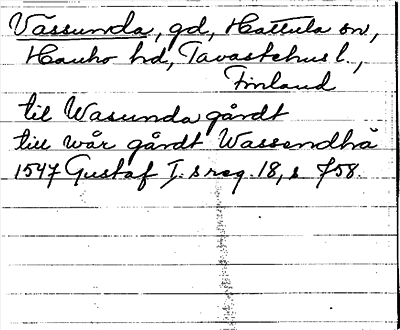 Vässunda, gd, Hattula sn,
Hauho hd, Tavastehus l.,
Finland
til Wasunda gårdt
till wår gårdt Wassendhå
1547 Gustaf I:s reg. 18, s 758.